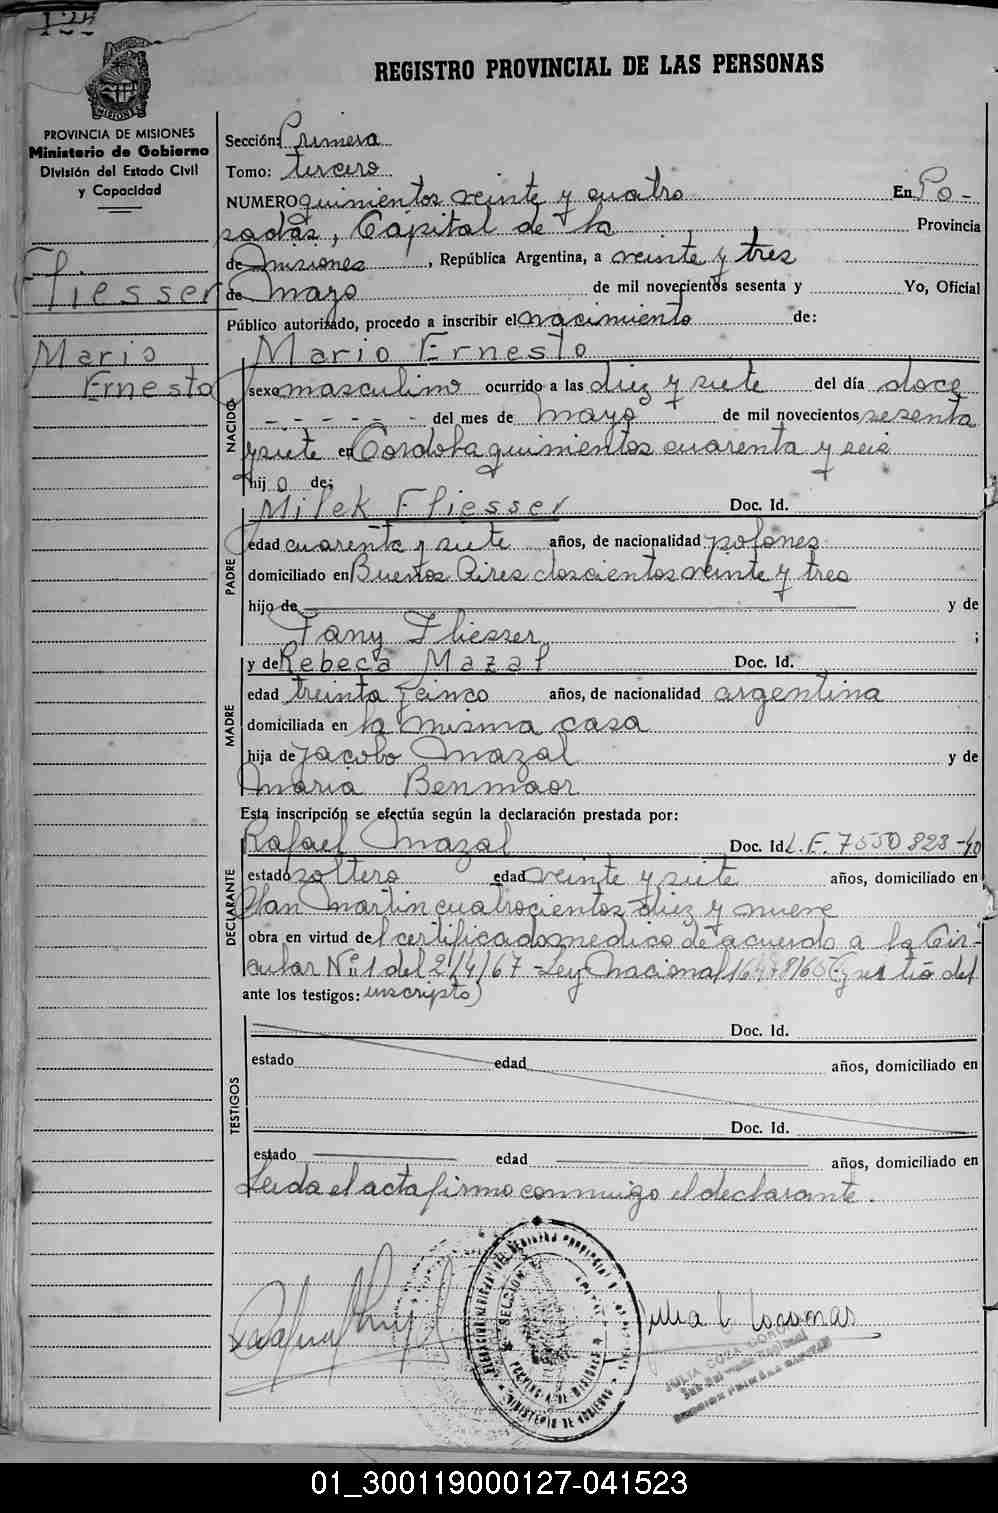 REGISTRO PROVINCIAL DE LAS PERSONAS
PROVINCIA DE MISIONES
Ministerio de Gobierno
División del Estado Civil
y Capacidad
Fliesser
Mario
Ernesto
Sección: Primera
Tomo: tercero
NUMERO quinientos veinte y cuatro En Po-
sadas, Capital de la Provincia
de Misiones, República Argentina, a veinte y tres
de Mayo de mil novecientos sesenta y Yo, Oficial
Público autorizado, procedo a inscribir el nacimiento de:
NACIDO
Mario Ernesto
sexo masculino ocurrido a las diez y siete del día doce
- - - - - del mes de mayo de mil novecientos sesenta
y siete en Cordoba quinientos cuarenta y seis
hijo de:
PADRE
Milek Fliesser Doc. Id.
edad cuarenta y siete años, de nacionalidad polones
domiciliado en Buenos Aires doscientos veinte y tres
hijo de y de
Fany Fliesser ;
MADRE
y de Rebeca Mazal Doc. Id.
edad treinta y cinco años, de nacionalidad argentina
domiciliada en la misma casa
hija de Jacobo Mazal y de
Maria Benmaor
Esta inscripción se efectúa según la declaración prestada por:
DECLARANTE
Rafael Mazal Doc. Id. L.E. 7550823-
estado soltero edad veinte y siete años, domiciliado en
San Martin cuatrocientos diez y nueve
obra en virtud del certificado medico de acuerdo a la Cir-
cular Nº 1 del 21/4/67 - Ley Nacional 16478/65 (y es tio del
ante los testigos: inscripto)
TESTIGOS
Doc. Id.
estado edad años, domiciliado en
Doc. Id.
estado edad años, domiciliado en
Leida el acta firmo conmigo el declarante.
SECCION
PROVINCIA DE MISIONES
MINISTERIO DE GOBIERNO
01_300119000127-041523